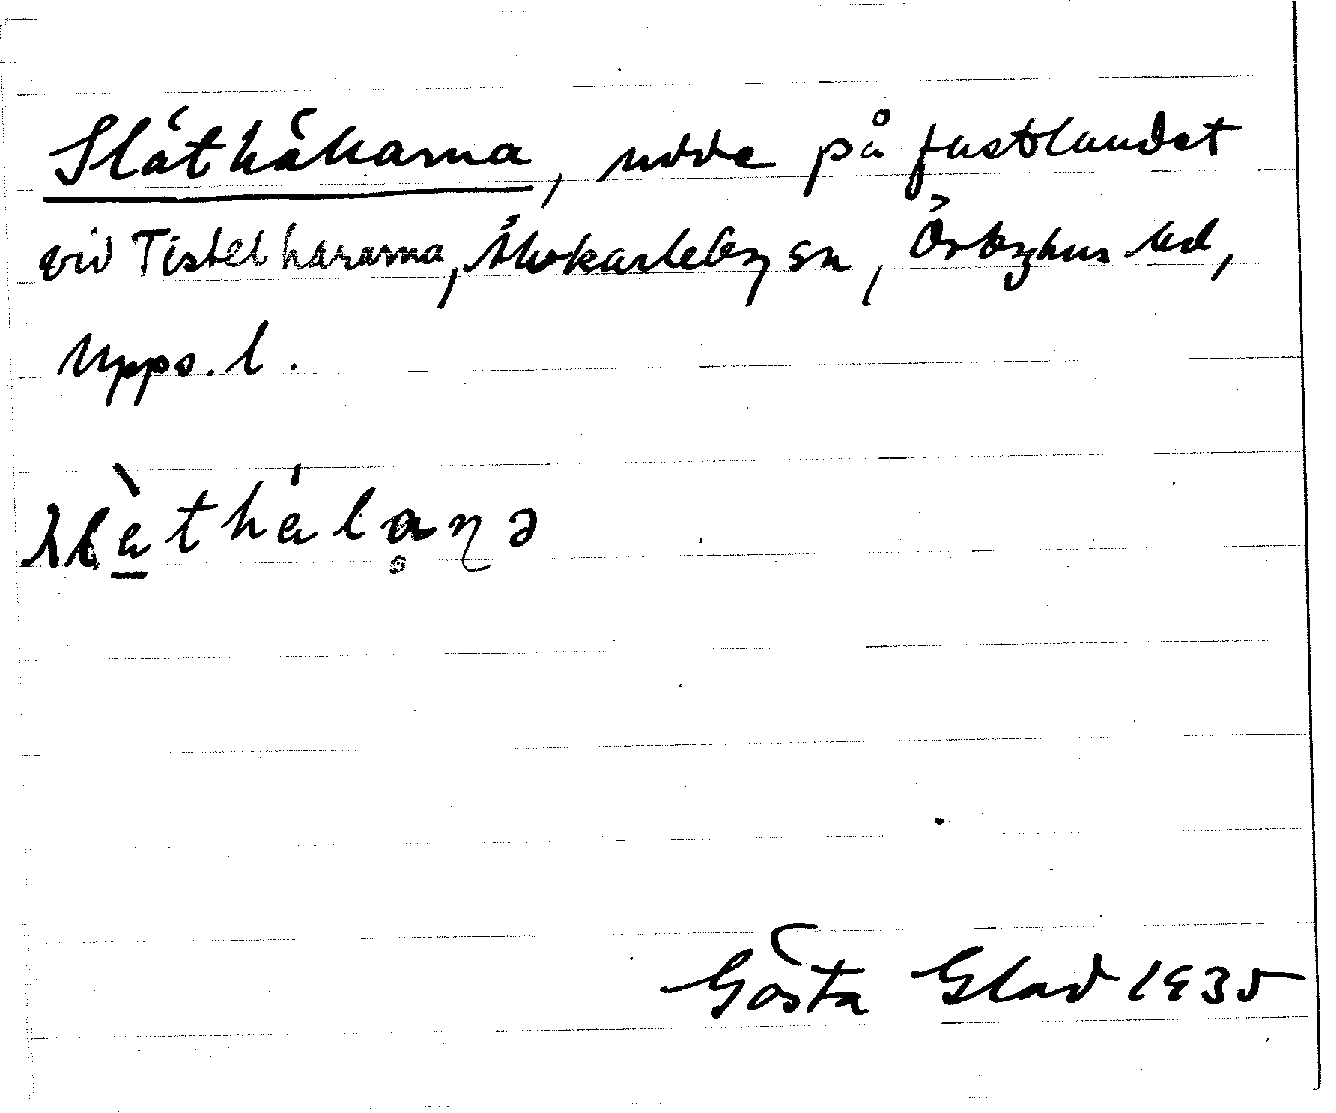 Släthälarna, udde på fastlandet
vid Tistelhararna, Älvkarleby sn, Örbyhus hd,
Upps. l.
Gösta Glad 1935